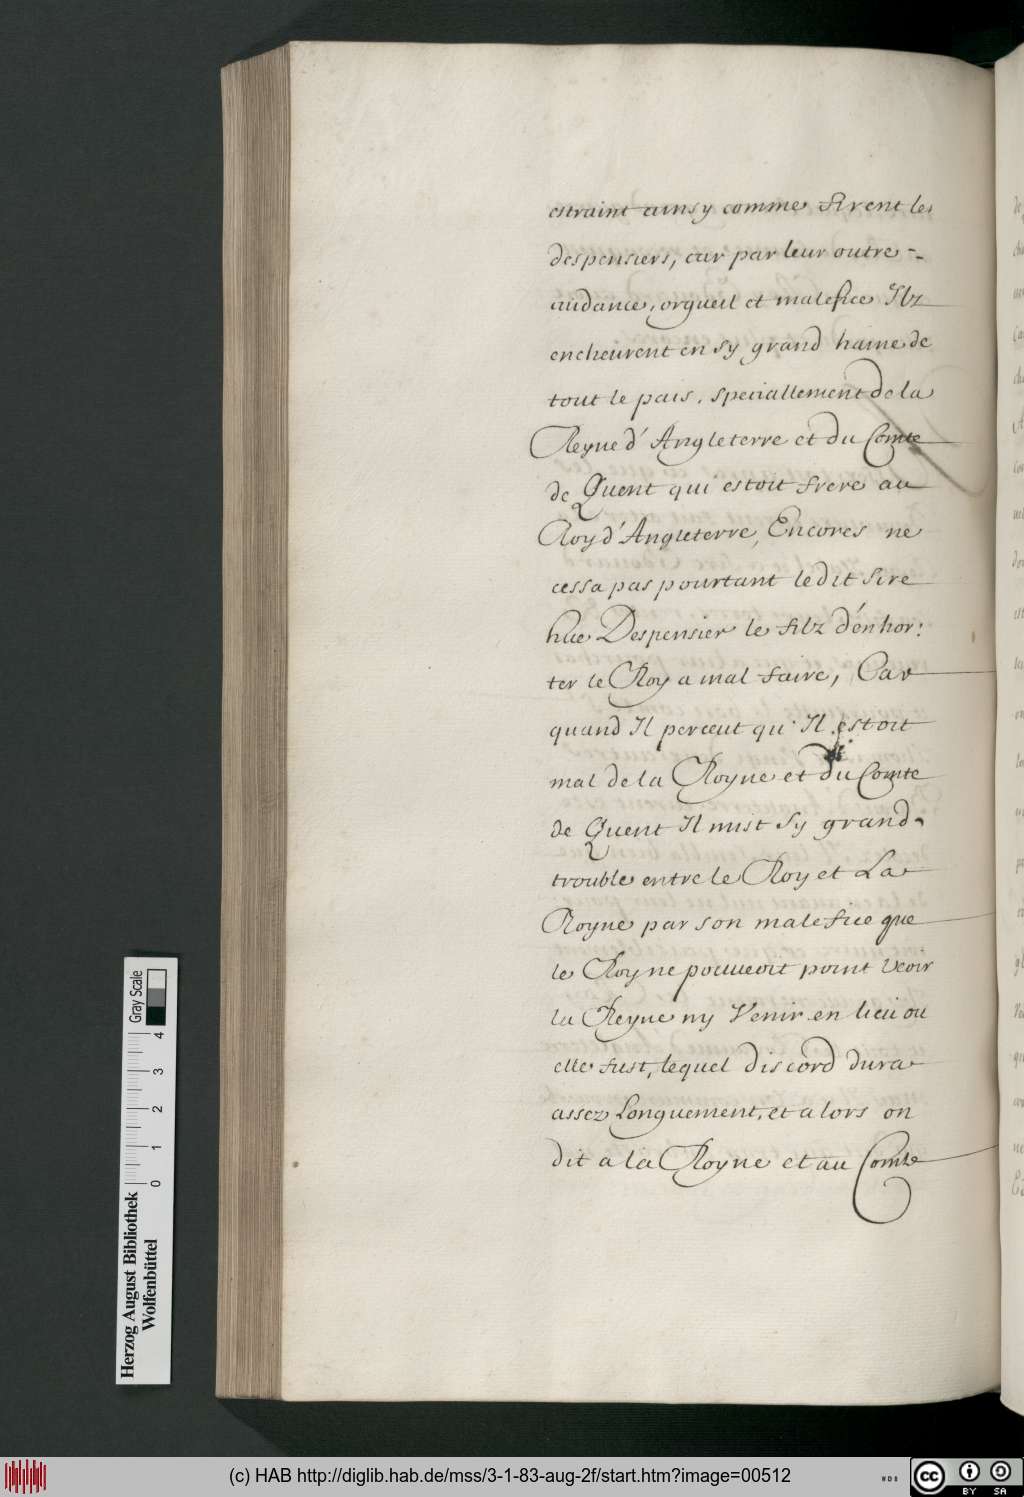 estraint ainsy comme firent les
despensiers, car par leur outre-
cuidance, orgueil et malefice Ilz
encheurent en sy grand haine de
tout le pais, speciallement de la
Reyne d'Angleterre et du Comte
de Quent qui estoit frere au
Roy d'Angleterre, Encores ne
cessa pas pourtant ledit sire
hue Despensier le filz d'énhor:
ter le Roy a mal faire, Car
quand Il perceut qu'Il estoit
mal de la Royne et du Comte
de Quent Il mist sy grand
trouble entre le Roy et La
Royne par son malefice que
le Roy ne pouueoit point veoir
la Reyne ny Venir en lieu ou
elle fust, lequel discord dura
assez Longuement, et alors on
dit a la Royne et au Comte
Gray Scale
4
3
2
1
0
Herzog August Bibliothek
Wolfenbüttel
(c) HAB http://diglib.hab.de/mss/3-1-83-aug-2f/start.htm?image=00512
WDB
cc
BY SA